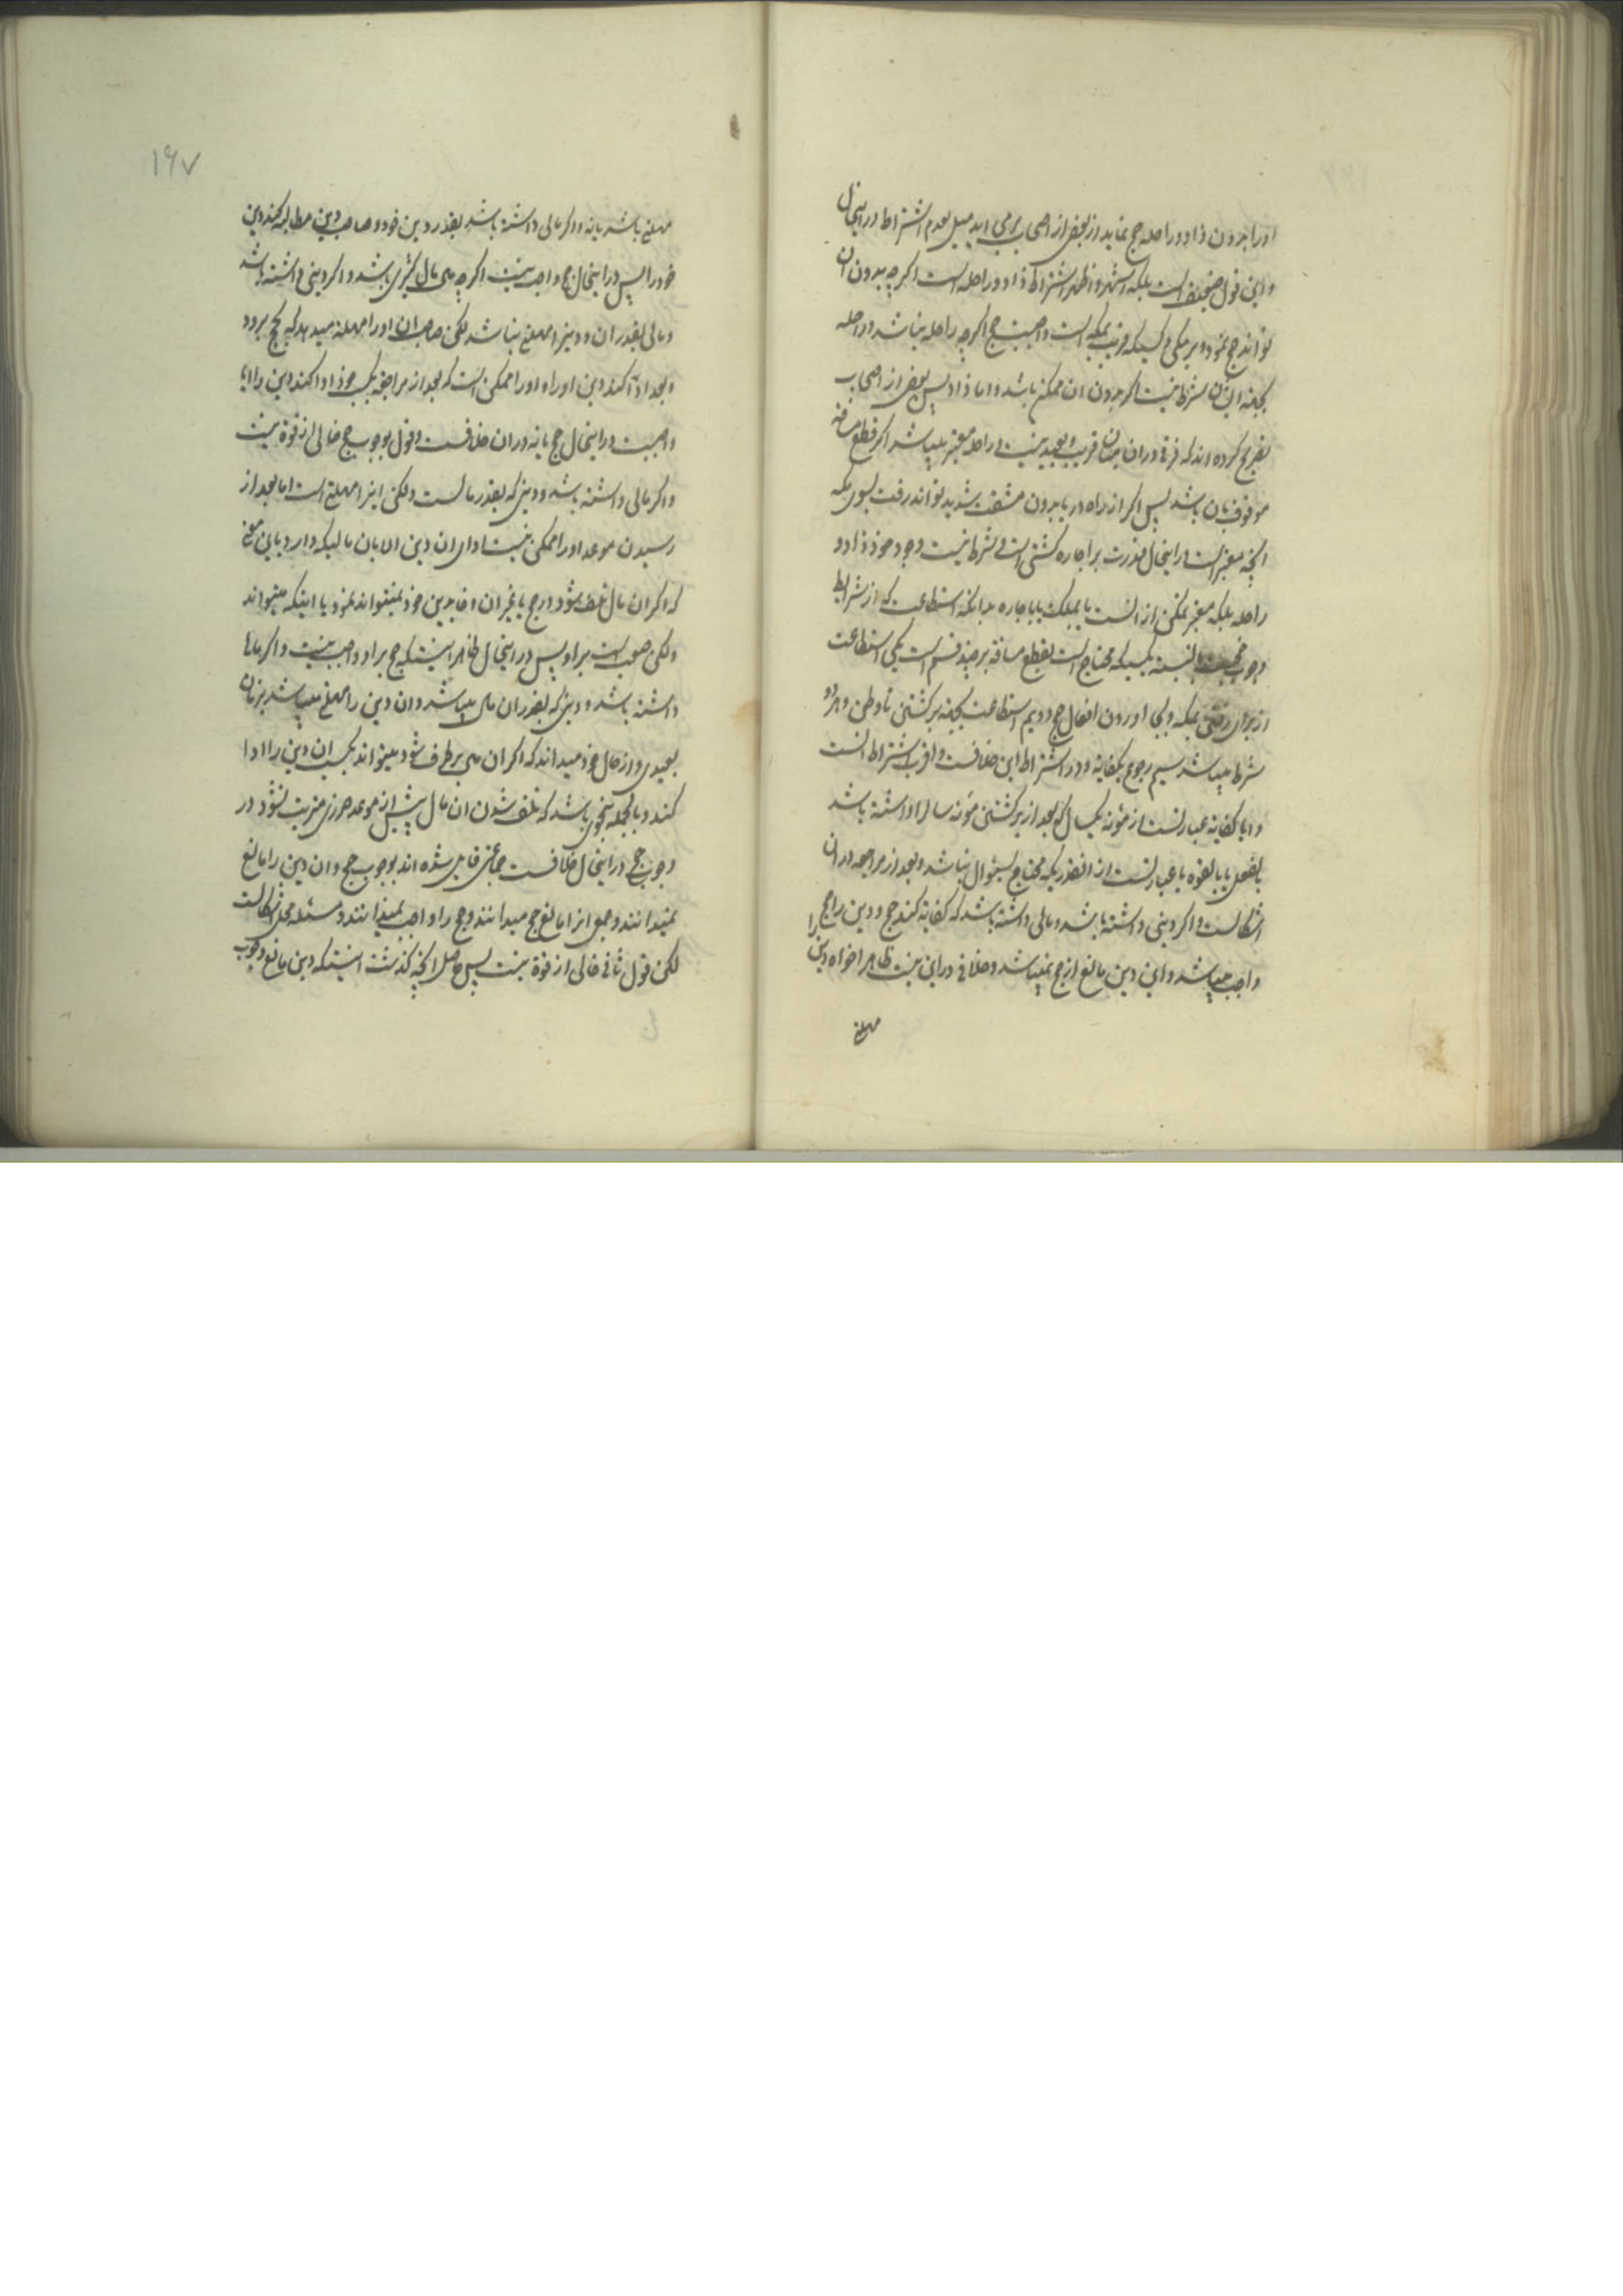 او را بدون زاد و راحله حج نماید از بعض از اصحاب برمی اید میل بعدم اشتراط در اینحال
و این قول ضعیف است بلکه اشهر و اظهر اشتراط زاد و راحله است اکرچه بدون ان
تواند حج نمود و بر مکی و کسیکه قریب بمکه است واجبست حج اکرچه راحله نباشد و راحله
بجهة ایشان شرط نیست اکر بدون ان ممکن باشد و اما زاد پس بعض از اصحاب
تصریح کرده اند که فرقی در ان میان قریب و بعید نیست و راحله معتبر میباشد اکر قطع مسافة
موقوف بان باشد پس اکر از راه دریا بدون مشقت شدید تواند رفت بسوی مکه
انچه معتبر است در اینحال قدرت بر اجاره کشتی است و شرط نیست وجود خود زاد و
راحله بلکه معتبر تمکن از انست یا بملک یا باجاره بدانکه استطاعت که از شرایط
وجوب حجست بالنسبة بکسیکه محتاج است بقطع مسافة بر چند قسم است یکی استطاعت
از برای رفتن بمکه و بجا اوردن افعال حج دویم استطاعت بجهة برکشتن تا وطن و هر دو
شرط میباشد سیم رجوع بکفایة و در اشتراط این خلافست و اقرب اشتراط انست
و اما کفایة عبارتست از مئونه یکسال که بعد از برکشتن مئونه سال را داشته باشد
بالفعل یا بالقوه یا عبارتست از انقدریکه محتاج بسئوال نباشد و بعد از مراجعه در ان
اشکالست و اکر دینی داشته باشد و مالی داشته باشد که کفایة کند حج و دین را حج را
واجب میباشد و این دین مانع از حج نمیباشد و خلافی در این نیست ظاهرا خواه دین
مهملة
۱۶۷
مهملة باشد یا نه و اکر مالی داشته باشد بقدر دین خود و صاحب دین مطالبه کند دین
خود را پس در اینحال حج واجب نیست اکرچه مال کثیری باشد و اکر دینی داشته باشد
و مالی بقدر ان و دین را مهملة نباشد لکن صاحب ان او را مهملة میدهد که بحج برود
و بعد ادا کند دین او را و او را ممکن است که بعد از مراجعة بکسب خود ادا کند دین را ایا
واجبست در اینحال حج یا نه در ان خلافست و قول بوجوب حج خالی از قوة نیست
و اکر مالی داشته باشد و دینی که بقدر مالست ولکن انرا مهملة است اما بعد از
رسیدن موعد او را ممکن نیست ادای ان دین الا بان مالیکه دارد باین معنی
که اکر ان مال تلف شود در حج یا غیر ان وفا بدین خود نمیتواند نمود یا اینکه میتواند
ولکن صعب است بر او پس در اینحال ظاهر اینستکه حج بر او واجب نیست و اکر مال
داشته باشد و دینی که بقدر ان مال میباشد و ان دین را مهملة میباشد بزمان
بعیدی و از حال خود میداند که اکر ان مال برطرف شود میتواند بکسب ان دین را ادا
کند و بالجمله بنحوی باشد که تلف شدن ان مال پیش از موعد ضرری مترتب نشود در
وجوب حج در اینحال خلافست جماعتی قایل شده اند بوجوب حج و ان دین را مانع
نمیدانند و جمعی انرا مانع حج میدانند و حج را واجب نمیدانند و مسئله محل اشکالست
لکن قول ثانی خالی از قوة نیست پس حاصل انچه کذشت اینستکه دین مانع وجوب